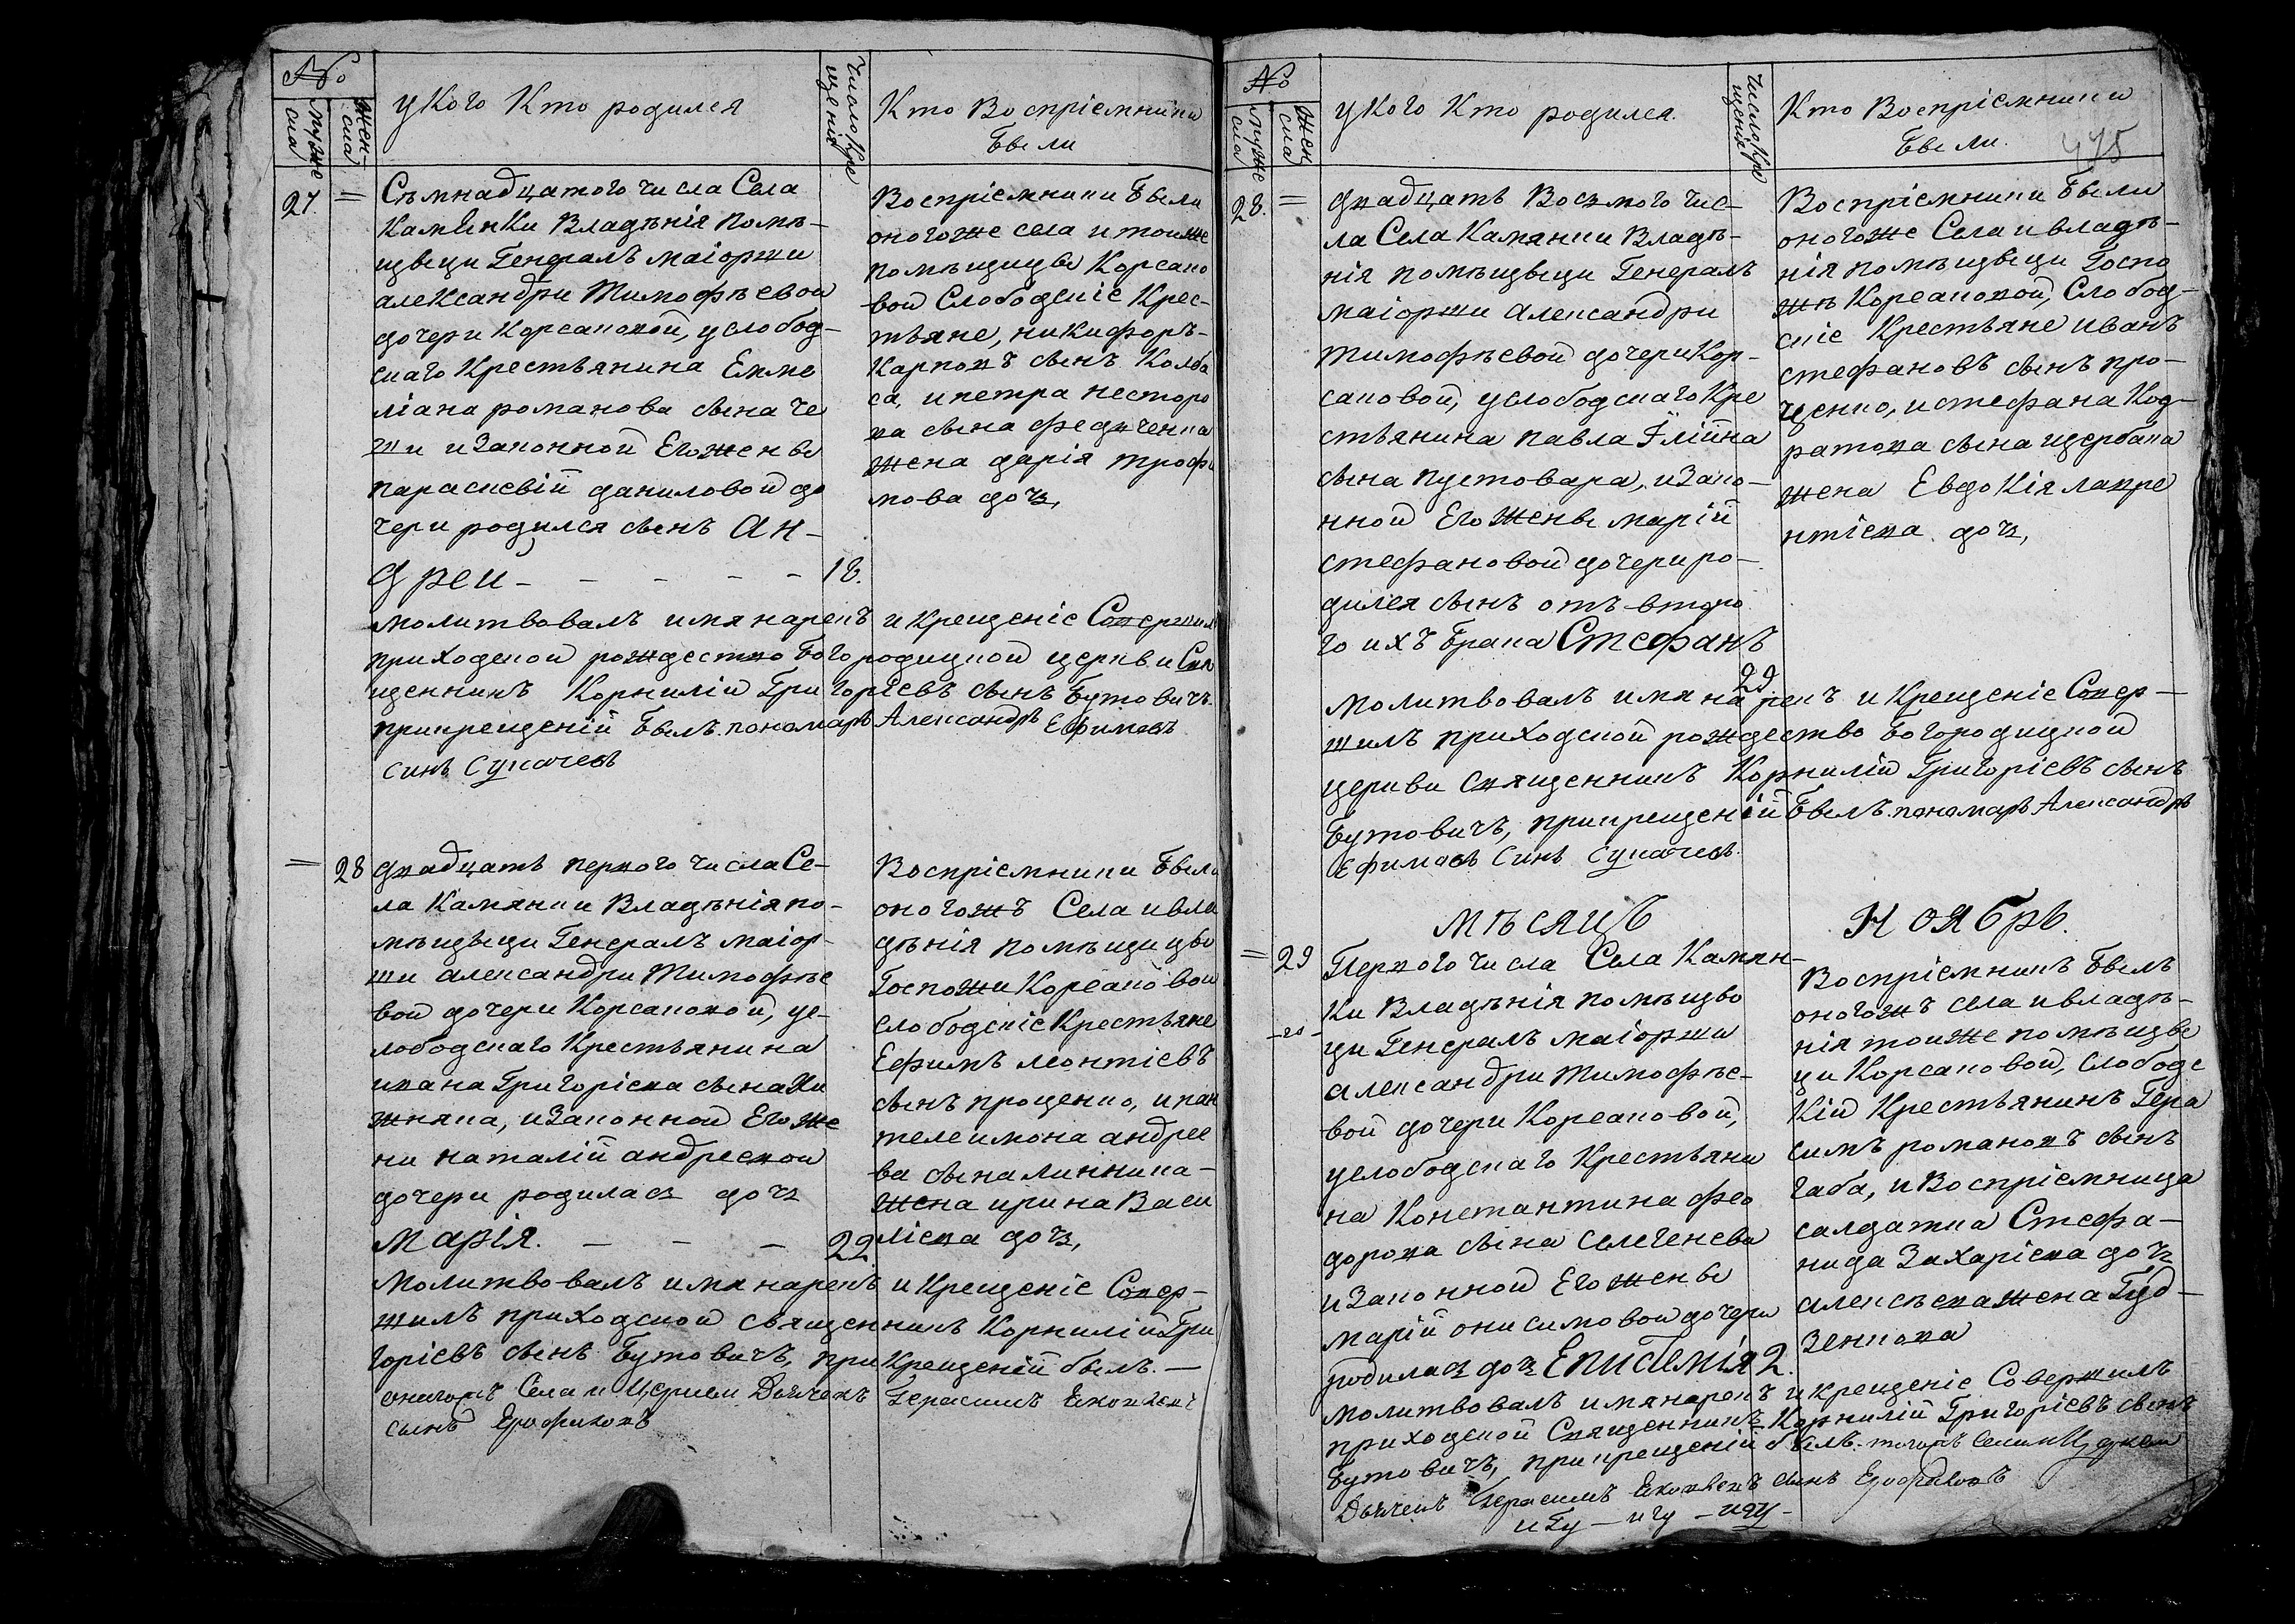 №
мужеска
женска
у Кого Кто родился
число крещенія
Кто Воспріемники
были
27. =
Съмнадцатого числа Села
Камянки Владѣнія помѣ-
щыци Генералъ маіорши
александри Тимофѣевой
дочери Корсаковой, услобод-
скаго Крестьянина Емме
ліана романова сына че
и Законной Его жены
параскевій даниловой до
чери родился сынъ Ан-
дрей - - - - - 18.
Воспріемники были
оногоже села и тоиже
помѣщицы Корсако
вой Слободскіе Крес-
тьяне, никифоръ-
Карповъ сынъ Колба
са, и петра нестеро
ва сына федченка
жена дарія трофи
мова дочь,
молитвовалъ имя нарекъ и Крещеніе Совершил
приходской рождество богородицкой церкви Свя
щенникъ Корнилій Григоріевъ сынъ Бутовичъ.
прикрещеній былъ пономарь Александръ Ефимовъ
синъ Сукачевъ
= 28
двадцать первого числа Се-
ла Камянки Владѣнія по-
мѣщыци Генералъ маіор-
ши александри Тимофѣе
вой дочери Корсаковой, ус-
лободскаго Крестьянина
ивана Григоріева сына Хи
жняка, и Законной Его же
ни наталій андреевой
дочери родилась дочь
Марія. - - - 22
Воспріемники были
оногожъ Села и вла
дѣнія помѣщицы
Госпожи Корсаковой
слободскіе Крестьяне
Ефимъ леонтіевъ
сынъ проценко, и пан
телеимона андрее
ва сына линника-
жена ирина Васи
ліева дочь,
молитвовалъ имя нарекъ и Крещеніе Совер-
шилъ приходской священникъ Корнилій Гри
горіевъ сынъ Бутовичъ, при Крещеній былъ. -
оногожъ Села и Церкви Дьячекъ Герасимъ Яковлевъ
сынъ Ерофиковъ
№
мужеска
женска
у Кого Кто родился.
число крещенія
Кто Воспріемники
были.
475
28. =
двадцать Восмого чис-
ла Села Камянки Владѣ-
нія помѣщыци Генералъ
маіорши Александри
Тимофѣевой дочери Кор-
саковой, услободскаго Кре
стьянина павла Іліина
сына пустовара, и Зако-
нной Его жены марій
стефановой дочери ро-
дился сынъ отъ второ
го ихъ брака Стефанъ
29
Воспріемники были
оногоже Села и владѣ-
нія помѣщыци Госпо
жѣ Корсаковой, Слобод-
скіе Крестьяне иванъ
стефановъ сынъ про-
ценко, и стефана Код-
ратова сына щербака
жена Евдокія лавре
нтіева дочь,
молитвовалъ имя нарекъ и Крещеніе Совер-
шилъ приходской рождество богородицкой
церкви Священникъ Корнилій Григоріевъ сынъ
Бутовичъ, прикрещеній былъ пономарь Александръ
Ефимовъ Синъ Сукачевъ.
мѣсяцъ Ноябрь.
= 29
Первого числа Села Камян-
ки Владѣнія помѣщы
ци Генералъ маіорши
александри Тимофѣе-
вой дочери Корсаковой,
услободскаго Крестьяни
на Константина фео
дорова сына Селегенева
и Законной Его жены
марій онисимовой дочери
родилась дочь Епистимія 2.
Воспріемникъ былъ
оногожъ села и владѣ-
нія тоиже помѣщы
ци Корсаковой, Слободс
кій Крестьянинъ Гера
симъ романовъ сынъ
габа, и Воспріемница
салдатка Стефа-
нида Захаріева дочь
алексѣева жена Гуд-
зенкова
молитвовалъ имя нарекъ и крещеніе Совершилъ
приходской Священникъ Корнилій Григоріевъ сынъ
Бутовичъ, прикрещеній былъ тогожъ Села и Церкви
Дьячекъ Герасимъ Яковлевъ сынъ Ерофиковъ